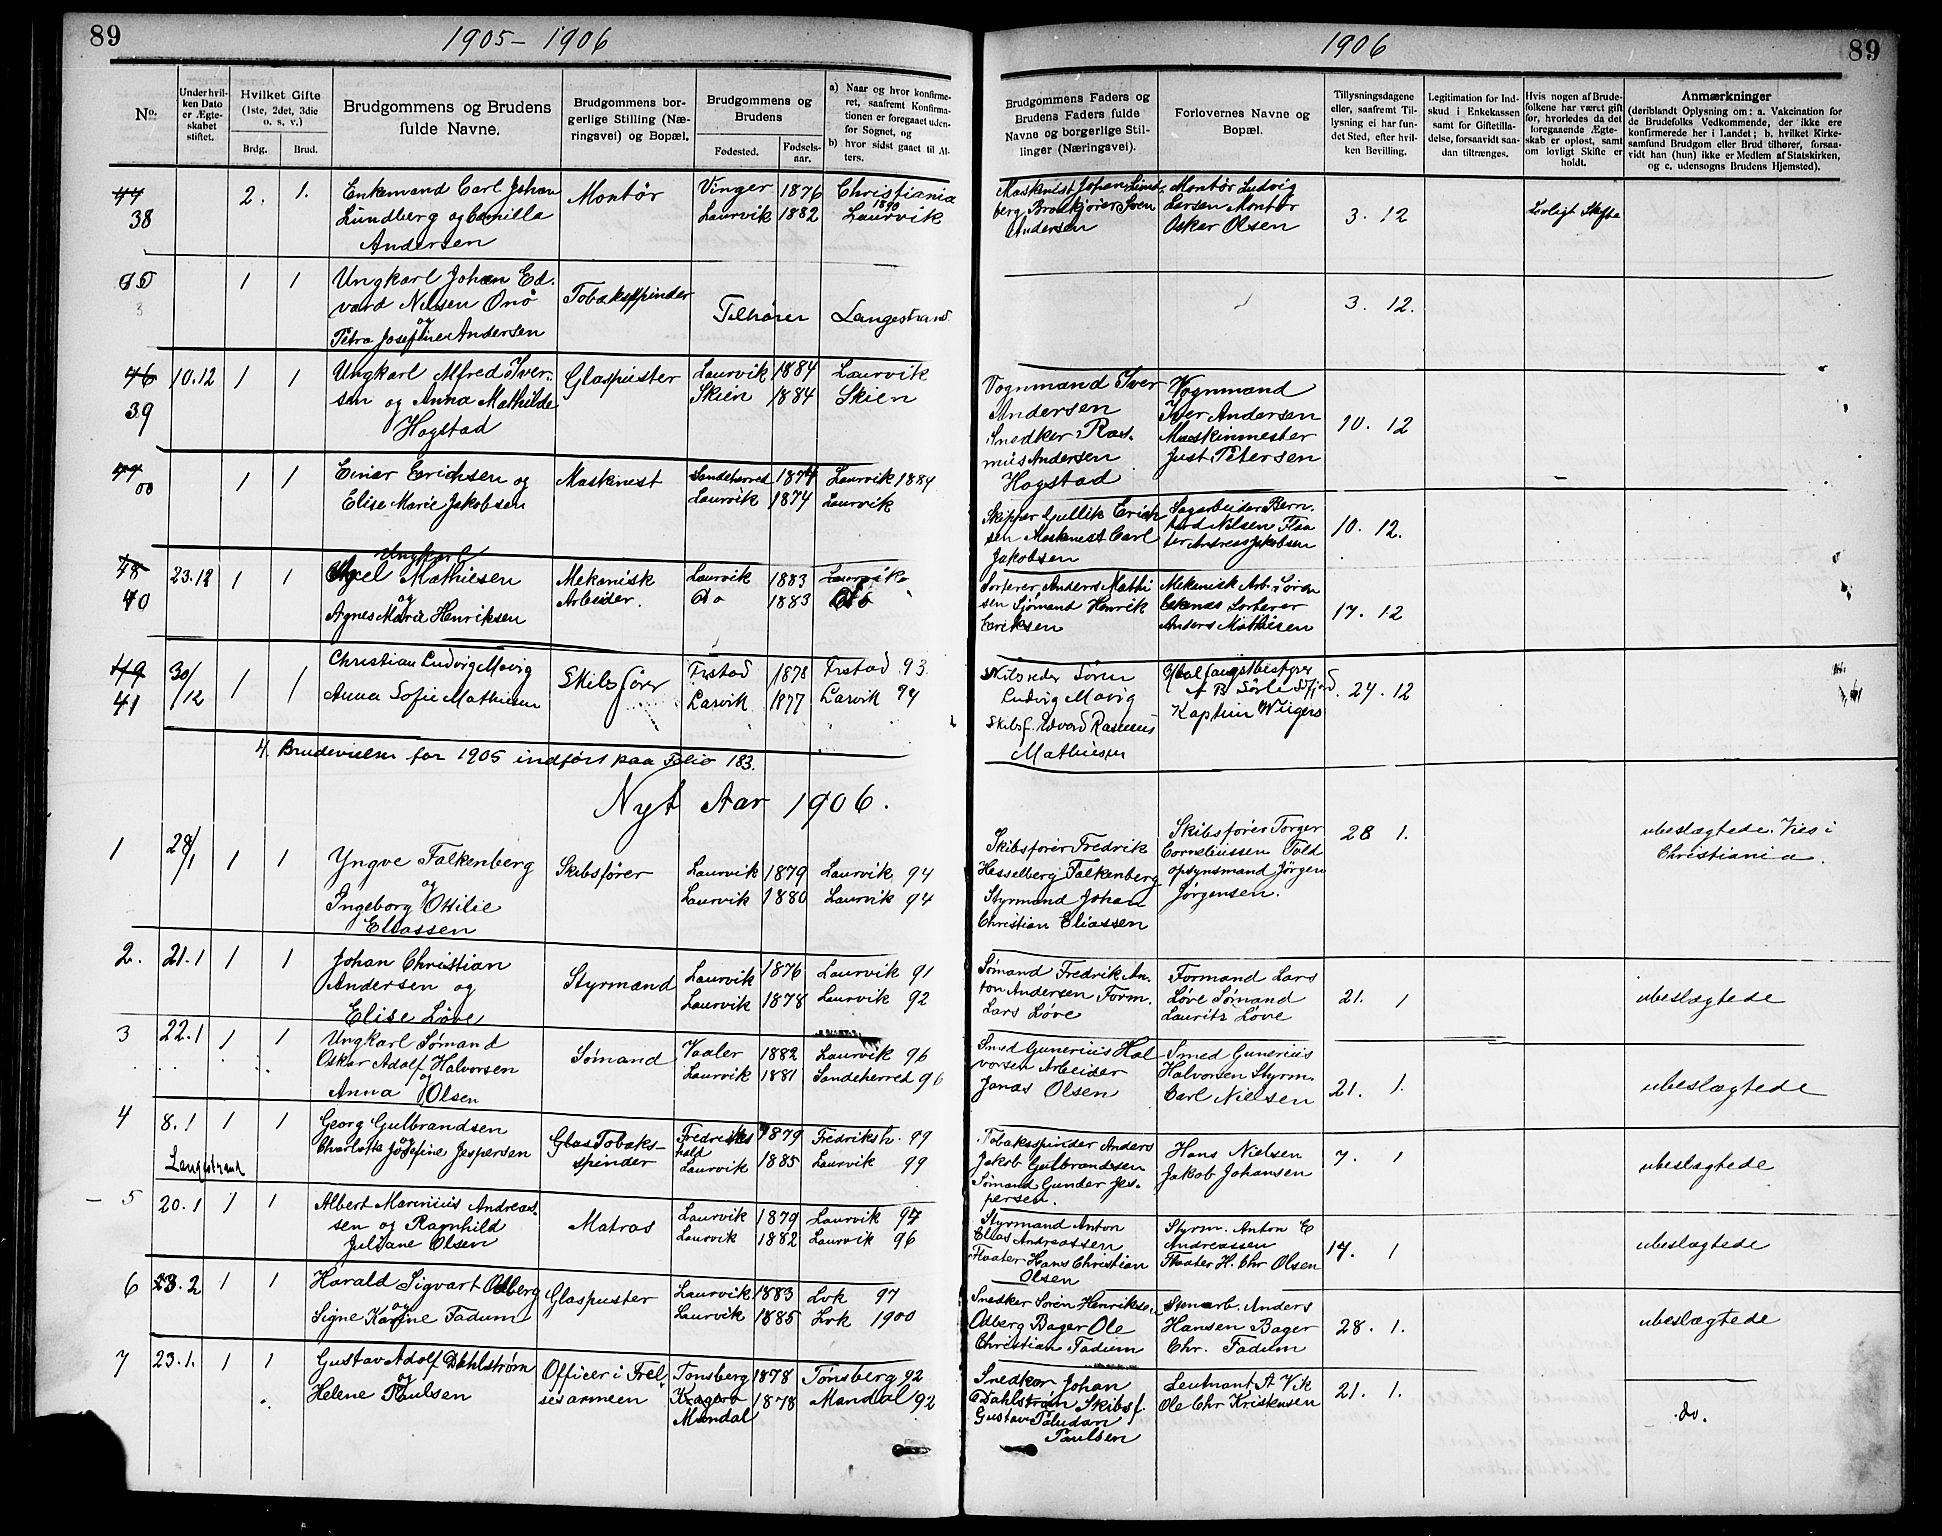 89
1905-1906
No.
Under hvil-
ken Dato
er Ægte-
skabet
stiftet.
Hvilket Gifte
(1ste, 2det, 3die
o. s. v.)
Brdg.
Brud.
Brudgommens og Brudens
fulde Navne.
Brudgommens bor-
gerlige Stilling (Næ-
ringsvei) og Bopæl.
Brudgommens og
Brudens
Fødested.
Fødsels-
aar.
a) Naar og hvor konfirme-
ret, saafremt Konfirma-
tionen er foregaaet uden-
for Sognet, og
b) hvor sidst gaaet til Al-
ters.
44
38
2. 1.
Enkemand Carl Johan
Lundberg og Camilla
Andersen
Montør
Vinger 1876 Christiania
1890
Laurvik 1882 Laurvik
1 1
Ungkarl Johan Ed-
vard Nilsen Onø
og
Petra Josefine Andersen
Tobaksspinder
Tilhører Langestrand
46 10.12 1 1
39
Ungkarl Alfred Iver-
sen og Anna Mathilde
Hogstad
Glaspuster
Laurvik 1884 Laurvik
Skien 1884 Skien
1 1
Einar Erichsen og
Elise Marie Jakobsen
Maskinist
Sandeherred 1874 Laurvik 1884
Laurvik 1874 Laurvik
48 23.12 1 1
40
Ungkarl
Axel Mathiesen
og
Agnes Marie Henriksen
Mekanisk
Arbeider.
Laurvik 1883 Laurvik
Do 1883 Do
49 30/12 1 1
41
Christian Ludvig Movig
Anna Sofie Mathiesen
Skibsfører
Frstad 1878 Frstad 93
Larvik 1877 Larvik 94
4. Brudevielser for 1905 indført paa Folio 183.
Nyt Aar 1906.
1 28/1 1 1
Yngve Falkenberg
og
Ingeborg Ottilie
Eliassen
Skibsfører
Laurvik 1879 Laurvik 94
Laurvik 1880 Laurvik 94
2. 21.1 1 1
Johan Christian
Andersen og
Elise Løve
Styrmand
Laurvik 1876 Laurvik 91
Laurvik 1878 Laurvik 92
3 22.1 1 1
Ungkarl Sømand
Oskar Adolf Halvorsen
og
Anna Olsen
Sømand
Vaaler 1882 Laurvik 96
Laurvik 1881 Sandeherred 96
4 8.1 1 1
Langestrand
Georg Gulbrandsen
og
Charlotte Josefine Jespersen
Glas Tobaks-
spinder
Fredriks
hald 1879 Fredriksh. 99
Laurvik 1885 Laurvik 99
5 20.1 1 1
Albert Marinius Andreas-
sen og Ragnhild
Juliane Olsen
Matros
Laurvik 1879 Laurvik 94
Laurvik 1882 Laurvik 96
6 23.2 1 1
Harald Sigvart Odberg
og
Signe Karine Fadum
Glaspuster
Laurvik 1883 Lvk 97
Laurvik 1885 Lvk 1900
7 23.1. 1 1
Gustav Adolf Dahlstrøm
og
Helene Paulsen
Officer i Frel-
sesarmeen
Tønsberg 1878 Tønsberg 92
Kragerø
Mandal 1878 Mandal 92
1906
89
Brudgommens Faders og
Brudens Faders fulde
Navne og borgerlige Stil-
linger (Næringsvei).
Forlovernes Navne og
Bopæl.
Tillysningsdagene
eller, saafremt Til-
lysning ei har fun-
det Sted, efter hvil-
ken Bevilling.
Legitimation for Ind-
skud i Enkekassen
samt for Giftetilla-
delse, forsaavidt saa-
dan tiltrænges.
Hvis nogen af Brude-
folkene har været gift
før, hvorledes da det
foregaaende Ægte-
skab er opløst, samt
om lovligt Skifte er
holdt.
Anmærkninger
(deriblandt Oplysning om: a. Vakcination for
de Brudefolks Vedkommende, der ikke ere
konfirmerede her i Landet; b. hvilket Kirke-
samfund Brudgom eller Brud tilhører, forsaa-
vidt han (hun) ikke er Medlem af Statskirken,
og c. udensogns Brudens Hjemsted).
Maskinist Johan Lund-
berg Brolkjører Sven
Andersen
Montør Ludvig
Larsen Montør
Oskar Olsen
3. 12
Lovligt Skifte
3. 12.
Vognmand Iver
Andersen
Snedker Ras-
mus Andersen
Hogstad
Vognmand
Iver Andersen
Maskinmester
Just Petersen
10. 12
Skipper Gullik Erich
sen Maskinist Carl
Jakobsen
Sagarbeider Bern-
hard Nilsen Flaa-
ter Andreas Jakobsen
10. 12.
Sorterer Anders Mathi
sen Sjømand Henrik
Eriksen
Mekanisk Arb. Søren
Sorterer
Anders Mathisen
17. 12
Søren
Ludvig Movig
Skibsf. Edvard Rasmus
Mathiesen
Hvalfangstbestyrer
Kaptein Wiigers
24. 12
Skibsfører Fredrik
Hesselberg Falkenberg
Styrmand Johan
Christian Eliassen
Skibsfører Torger
Corneliussen Told
opsynsmand Jørgen
Jørgensen.
28 1.
ubeslægtede. Vies i
Christiania.
Sømand Fredrik An-
ton Andersen Form.
Lars Løve
Formand Lars
Løve Sømand
Laurits Løve
21. 1
ubeslægtede
Smed Gunerius Hal
vorsen Arbeider
Jonas Olsen
Smed Gunerius
Halvorsen Styrm.
Carl Nielsen
21. 1.
ubeslægtede
Tobaksspinder Anders
Jakob Gulbrandsen
Sømand Gunder Jes-
persen.
Hans Nielsen
Jakob Johansen
7. 1
ubeslægtede
Styrmand Anton
Elias Andreassen
Flaater Hans Christian
Olsen
Styrm. Anton E
Andreassen
Flaater H. Chr Olsen
14. 1
ubeslægtede
Snedker Søren Henriksen
Odberg Bager Ole
Christian Fadum
Stenarb. Anders
Hansen Bager
Chr. Fadum
28. 1.
ubeslægtede
Snedker Johan
Dahlstrøm Skibsf.
Gustav Paludan
Paulsen
Leutnant A Vik
Ole Chr Kristensen
21. 1.
do.